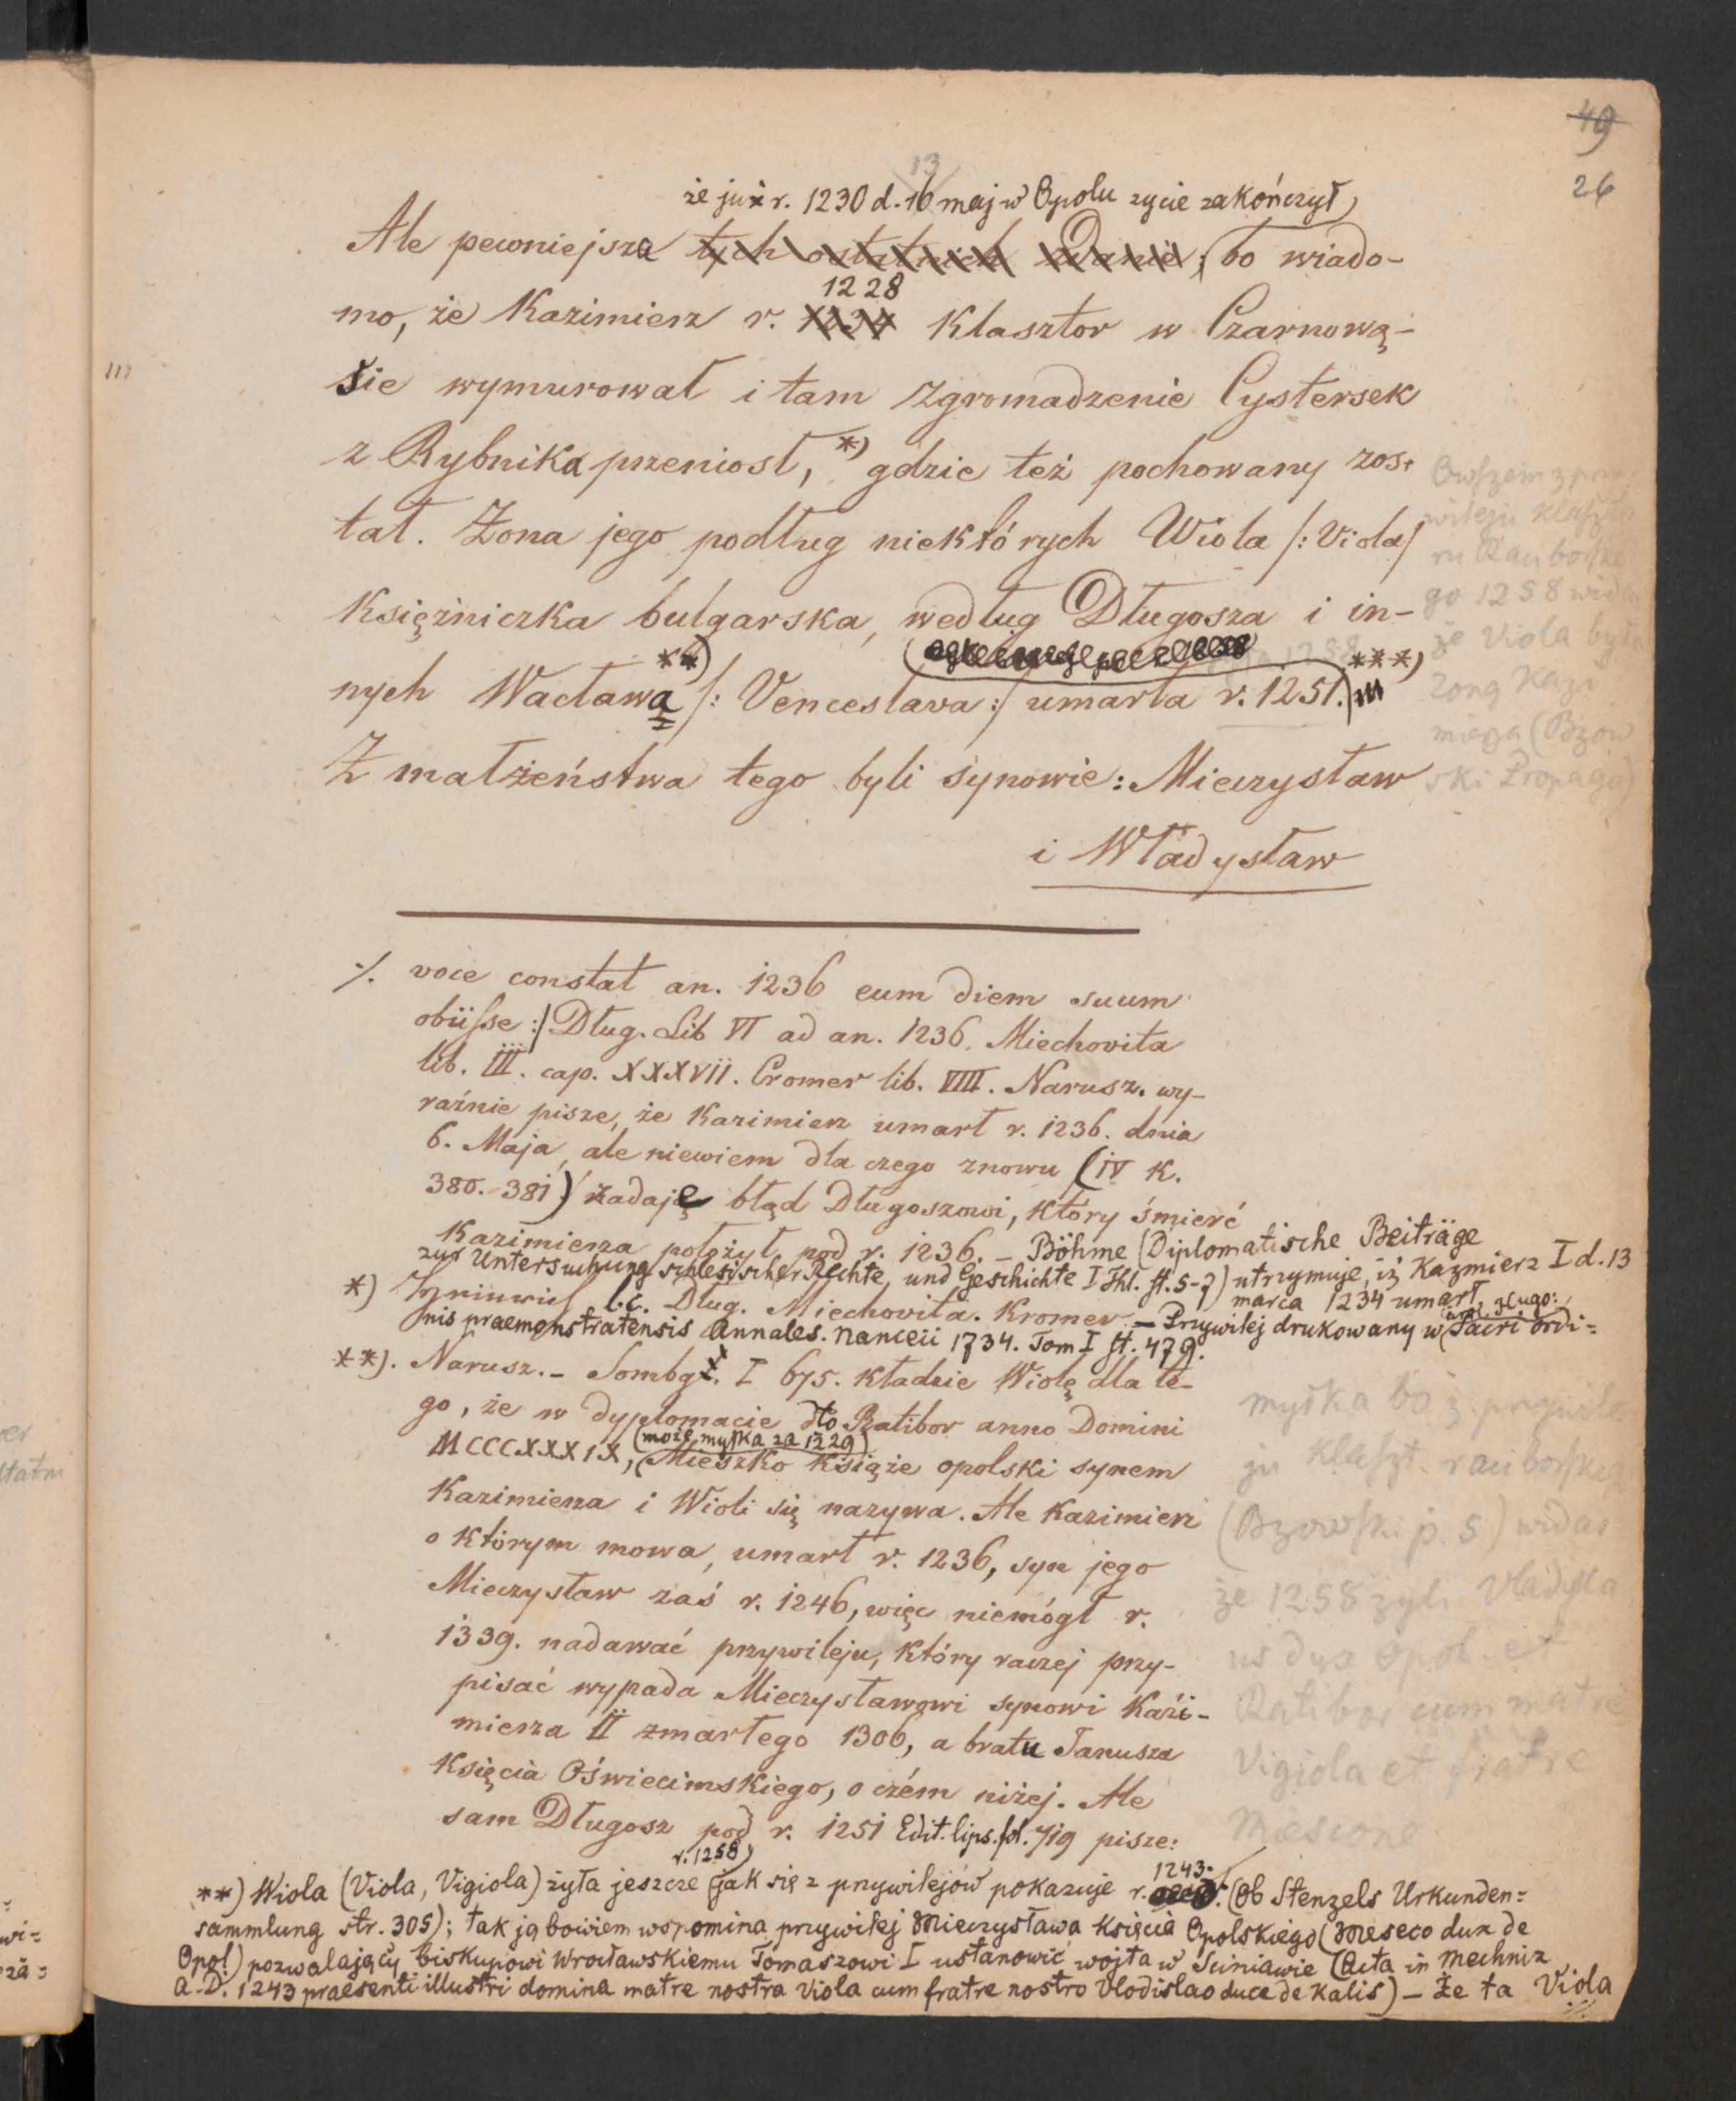 49
26
13
że już r. 1230 d. 16 maj w Opolu zycie zakończył,
Ale pewniejsza tych ostatnich zdanie, bo wiado-
1228
mo, że Kazimierz r. 1234 Klasztor w Czarnową-
sie wymurował i tam Zgromadzenie Cystersek
z Rybnika przeniosł, *) gdzie też pochowany zos-
tał. Żona jego podług niektórych Wiola /: Viola/
Księżniczka bulgarska, według Długosza i in-
nych Wacława **) /: Venceslava :/ umarła r. 1251. ***)
Z małżeństwa tego byli synowie: Mieczysław
i Władysław
Owszem z przy
wileju klaszto
ru Raciborskie
go 1258 widać
że Viola była
żoną Kazi
mierza (Bzow
ski Propago)
·/. voce constat an. 1236 eum diem suum
obiisse :/ Dług. Lib VI ad an. 1236. Miechovita
lib. III. cap. XXXVII. Cromer lib. VIII. Narusz. wy-
raźnie pisze, że Kazimierz umarł r. 1236. dnia
6. Maja, ale niewiem dla czego znowu (IV K.
380. 381) zadaje błąd Długoszowi, który śmierć
Kazimierza położył pod r. 1236. – Böhme (Diplomatische Beiträge
zur Untersuchung schlesischer Rechte und Geschichte I Thl. st. 5-7) utrzymuje, iż Kazmierz I d. 13
marca 1234 umarł,
*) l.c. Dług. Miechovita. Kromer. – Przywilej drukowany w Sacri ordi=
nis praemonstratensis Annales. Nanceii 1734. Tom I st. 479.
**). Narusz. – Sombg. I 675. kładzie Wiolę dla te-
go, że w dyplomacie dto Ratibor anno Domini
(może myłka za 1229)
MCCCXXXIX, Mieszko książe opolski synem
Kazimierza i Wioli się nazywa. Ale Kazimierz
o którym mowa, umarł r. 1236, syn jego
Mieczysław zaś r. 1246, więc niemógł r.
1339. nadawać przywileju, który raczej przy-
pisać wypada Mieczysławowi synowi Kazi-
mierza II zmarłego 1306, a bratu Janusza
Księcia Oświecimskiego, o czém niżej. Ale
sam Długosz pod r. 1251 Edit. lips. fol. 719 pisze:
myłka bo z przywile
ju klaszt. raciborskiego
(Bzowski p. 5) widać
że 1258 żyli Vladisla
us dux opol et
Ratibor cum matre
Vigiola et fratre
Mescone
r. 1258)
**) Wiola (Viola, Vigiola) żyła jeszcze (jak się z przywilejów pokazuje r. 1243. (Ob Stenzels Urkunden=
sammlung str. 305); tak ją bowiem wspomina przywilej Mieczysława Księcia Opolskiego (Meseco dux de
Opol) pozwalający biskupowi Wrocławskiemu Tomaszowi I ustanowić wojta w Sciniawie (Acta in Mechniz
A. D. 1243 praesenti illustri domina matre nostra Viola cum fratre nostro Vlodislao duce de Kalis) – Że ta Viola